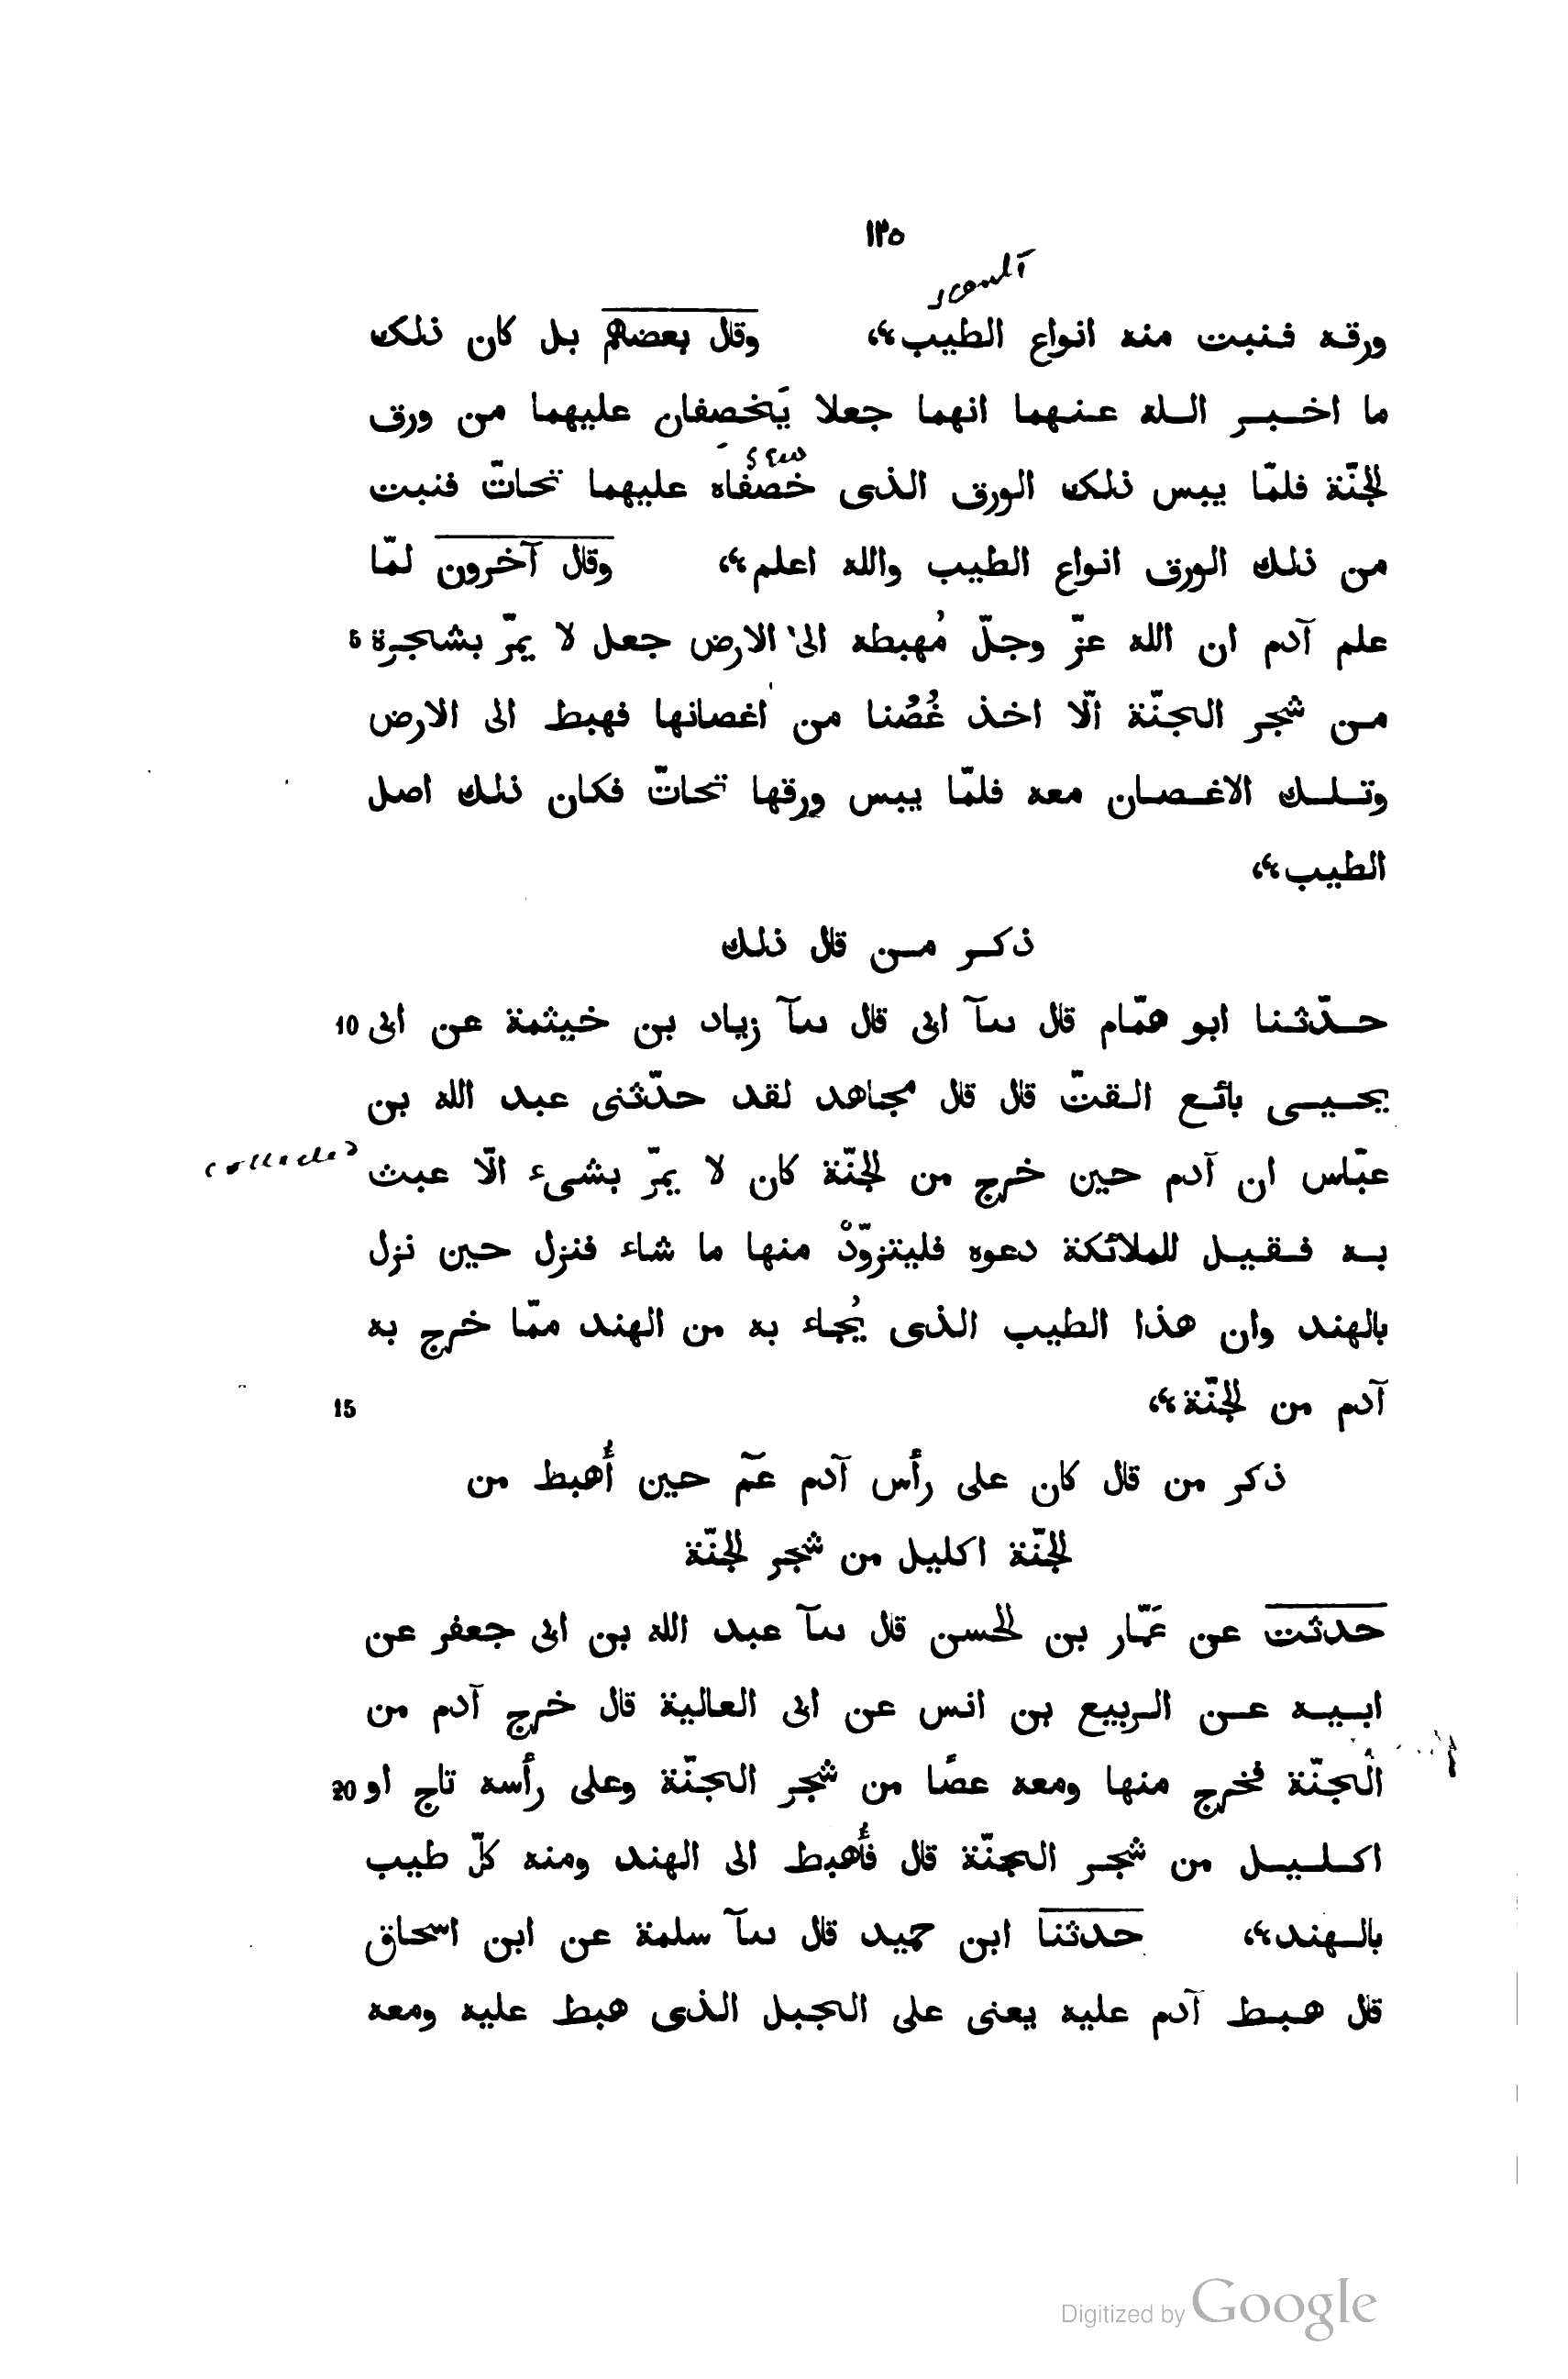 ١٢٥
ورقه فنبت منه انواع الطيب ،، وقال بعضهم بل كان ذلك
ما اخبر الله عنهما انهما جعلا يَخصفان عليهما من ورق
الجنّة فلمّا يبس ذلك الورق الذى خصفاه عليهما تحاتّ فنبت
من ذلك الورق انواع الطيب والله اعلم ،، وقال آخرون لمّا
علم آدم ان الله عزّ وجلّ مُهبطه الى الارض جعل لا يمرّ بشجرة 5
من شجر الجنّة الّا اخذ غُصُنا من اغصانها فهبط الى الارض
وتلك الاغصان معه فلمّا يبس ورقها تحاتّ فكان ذلك اصل
الطيب ،،
ذكر من قال ذلك
حدّثنا ابو همّام قال ثنآ ابى قال ثنآ زياد بن خيثمة عن ابى 10
يحيى بائع القتّ قال قال مجاهد لقد حدّثنى عبد الله بن
عبّاس ان آدم حين خرج من الجنّة كان لا يمرّ بشىء الّا عبث
به فقيل للملائكة دعوه فليتزوّدْ منها ما شاء فنزل حين نزل
بالهند وان هذا الطيب الذى يُجاء به من الهند ممّا خرج به
آدم من الجنّة ،، 15
ذكر من قال كان على رأس آدم عمّ حين أُهبط من
الجنّة اكليل من شجر الجنّة
حدثت عن عَمّار بن الحسن قال ثنآ عبد الله بن ابى جعفر عن
ابيه عن الربيع بن انس عن ابى العالية قال خرج آدم من
الجنّة فخرج منها ومعه عصًا من شجر الجنّة وعلى رأسه تاج او 20
اكليل من شجر الجنّة قال فأُهبط الى الهند ومنه كلّ طيب
بالهند ،، حدثنا ابن حميد قال ثنآ سلمة عن ابن اسحاق
قال هبط آدم عليه يعنى على الجبل الذى هبط عليه ومعه
Digitized by Google